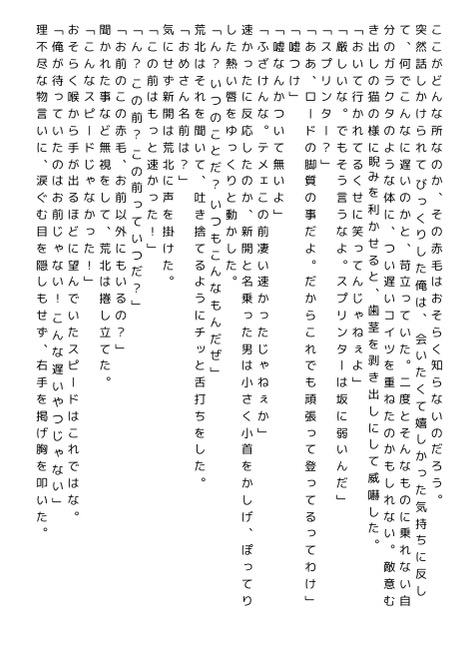 ここがどんな所なのか、その赤毛はおそらく知らないのだろう。
突然話しかけられてびっくりした俺は、会いたくて嬉しかった気持ちに反し
て、何でこんなに遅いのかと、苛立っていた。二度とそんなものに乗れない自
分のガラクタのような体に、つい遅いコイツを重ねたのかもしれない。敵意む
き出しの猫の様に睨みを利かせると、歯茎を剥き出しにして威嚇した。
「おいて行かれてるくせに笑ってんじゃねぇよ」
「厳しいな。でもそう言うなよ。スプリンターは坂に弱いんだ」
「スプリンター？」
「ああ、ロードの脚質の事だよ。だからこれでも頑張って登ってるってわけ」
「嘘つけ」
「嘘なんかついて無いよ」
「ふざけんな。テメェこの前凄い速かったじゃねぇか」
速かったに反応したのか、新開と名乗った男は小さく小首をかしげ、ぽってり
した熱い唇をゆっくりと動かした。
「ん？いつのことだ？いつもこんなもんだぜ」
荒北はそれを聞いて、吐き捨てるようにチッと舌打ちをした。
「おめさん名前は？」
気にせず新開は荒北に声を掛けた。
「この前はもっと速かった！」
「ん？この前？この前っていつだ？」
「お前のこの赤毛、お前以外にもいるの？」
聞かれた事など無視をして、荒北は捲し立てた。
「こんなスピードじゃなかった！」
おそらく喉から手が出るほどに望んでいたスピードはこれではな。
「俺が待っていたのはお前じゃない！こんな遅いやつじゃない」
理不尽な物言いに、涙ぐむ目を隠しもせず、右手を掲げ胸を叩いた。